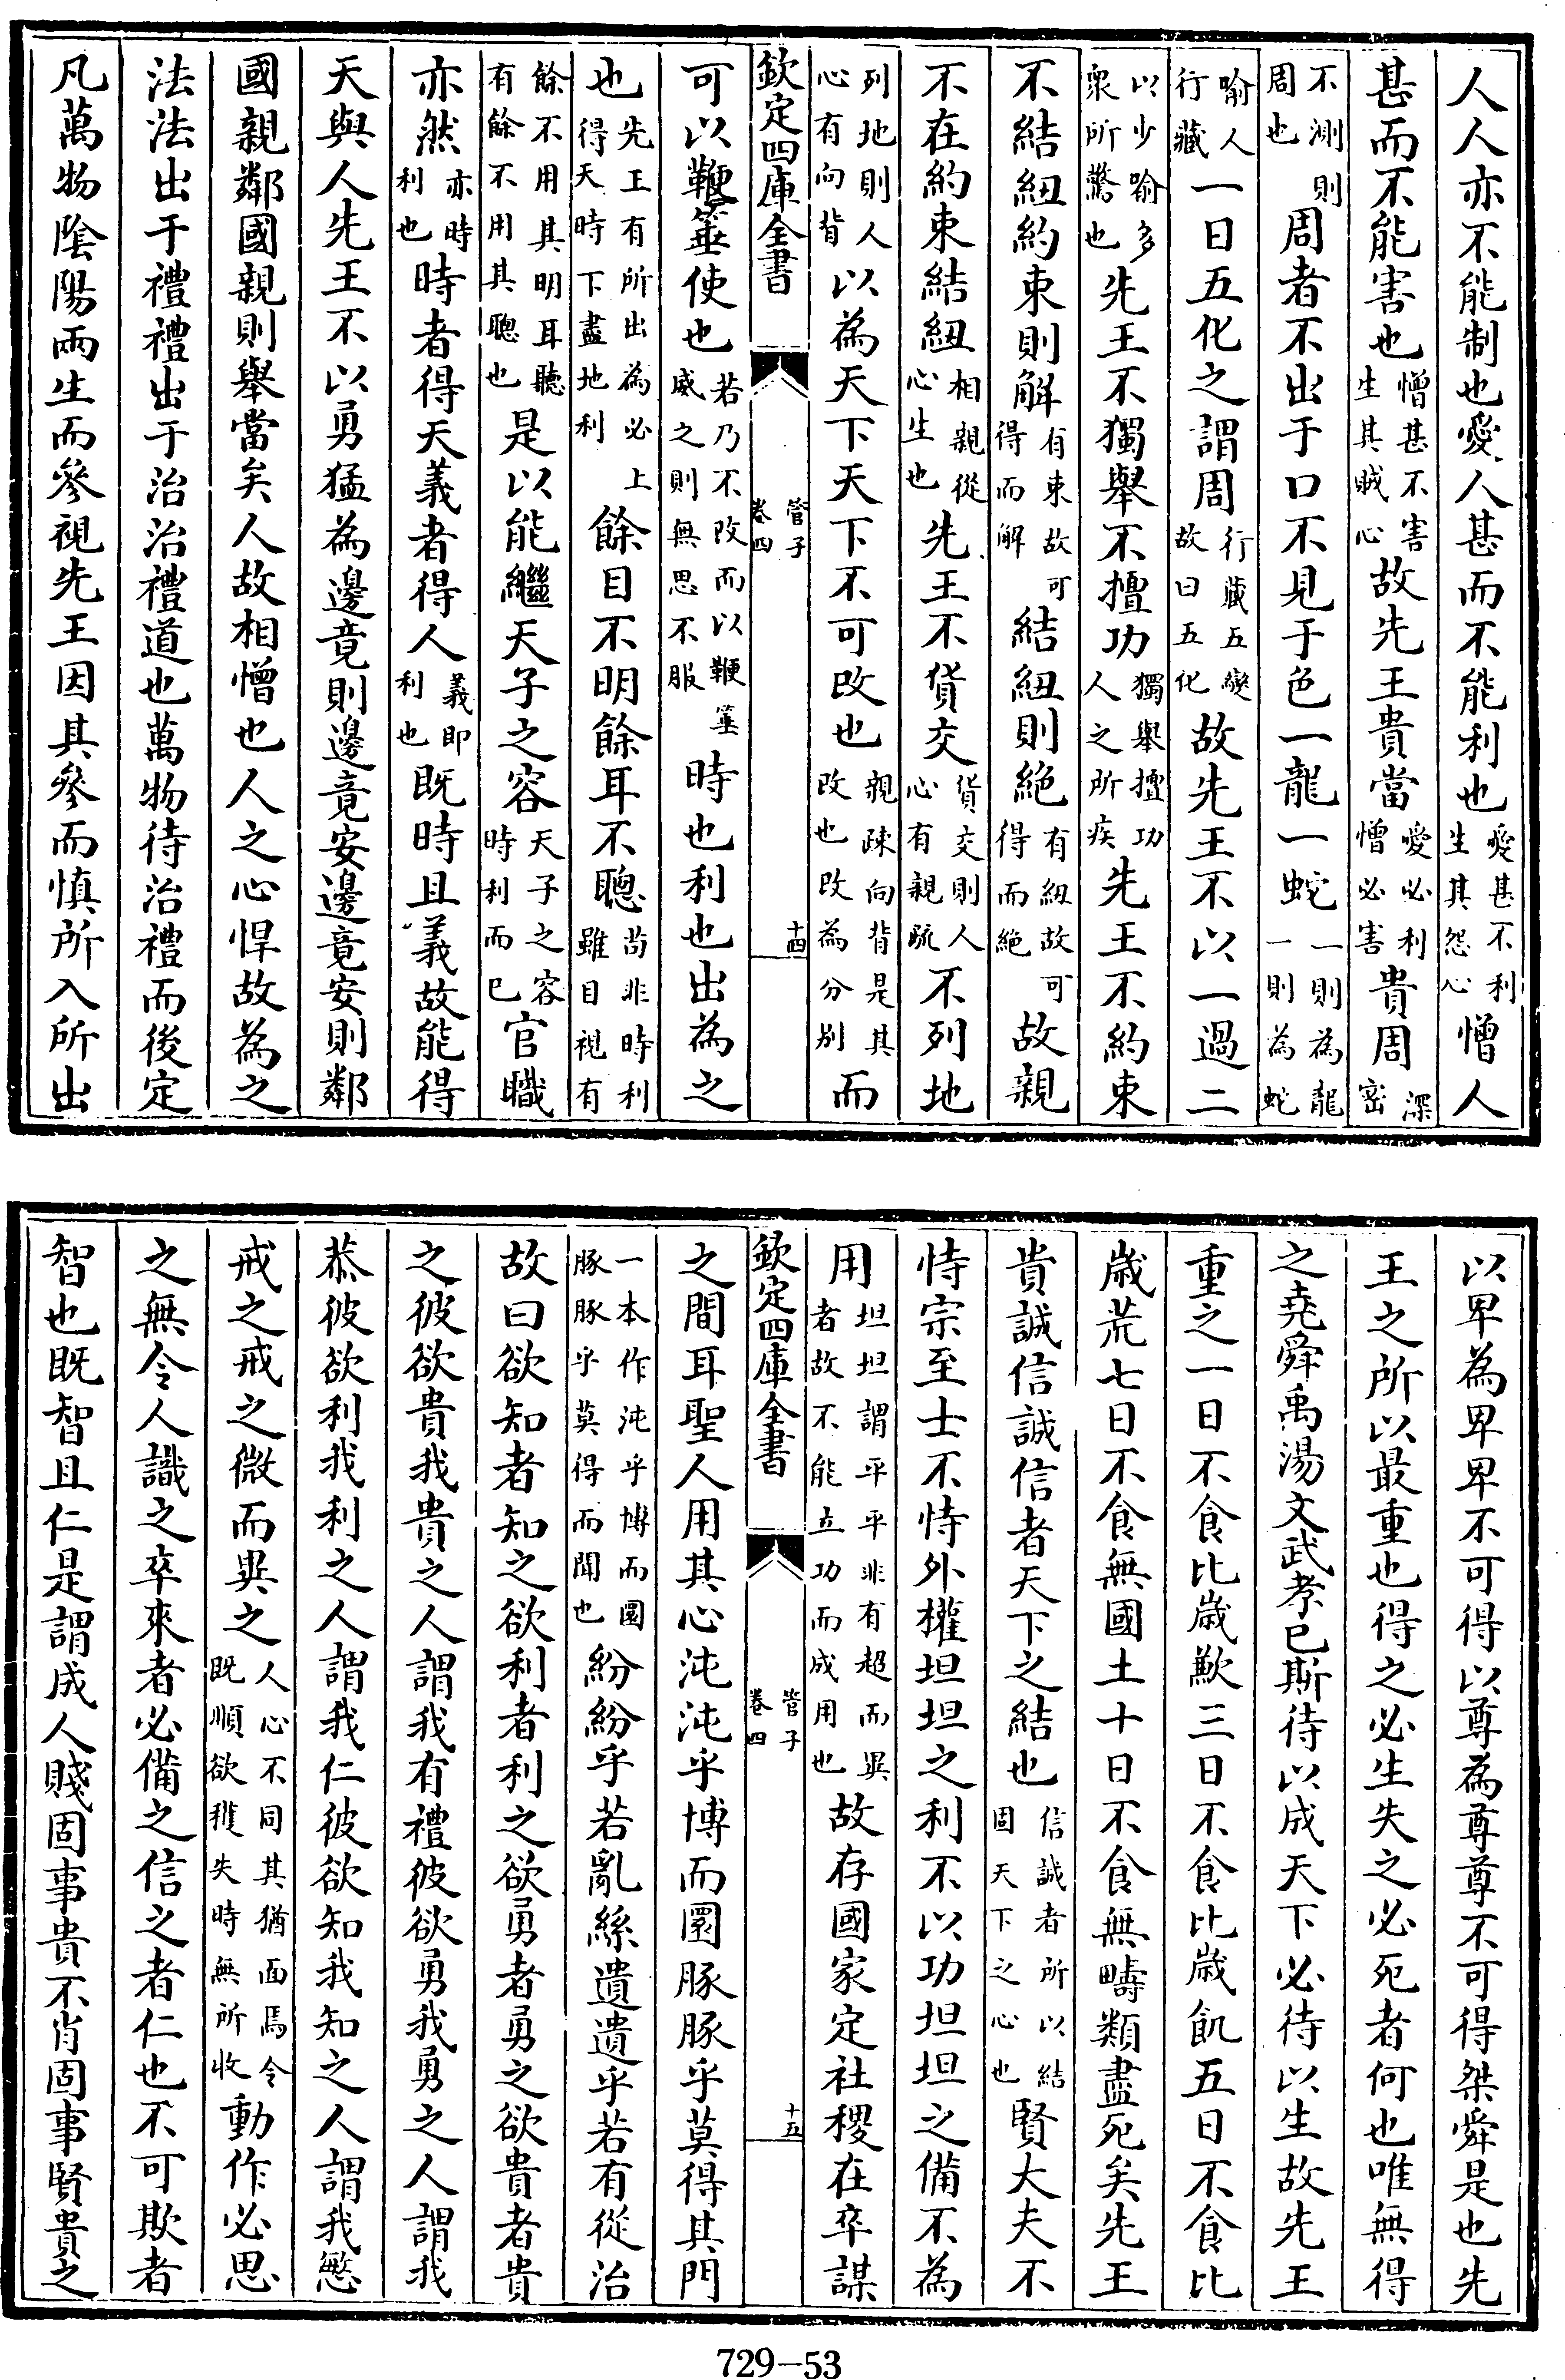 人人亦不能制也愛人甚而不能利也愛甚不利生其怨心憎人
甚而不能害也憎甚不害生其賊心故先王貴當愛必利憎必害貴周深密
不測則周也周者不出于口不見于色一龍一蛇一則為龍一則為蛇
喻人行藏一日五化之謂周行藏五變故曰五化故先王不以一過二
以少喻多衆所驚也先王不獨舉不擅功獨舉擅功人之所疾先王不約束
不結紐約束則解有束故可得而解結紐則絶有紐故可得而絶故親
不在約束結紐相親從心生也先王不貨交貨交則人心有親疏不列地
列地則人心有向背以為天下天下不可改也親疎向背是其改也改為分别而
欽定四庫全書
管子
卷四
十四
可以鞭箠使也若乃不改而以鞭箠威之則無思不服時也利也出為之
也先王有所出為必上得天時下盡地利餘目不明餘耳不聰苟非時利雖目視有
餘不用其明耳聽有餘不用其聰也是以能繼天子之容天子之容時利而已官職
亦然亦時利也時者得天義者得人義即利也既時且義故能得
天與人先王不以勇猛為邊竟則邊竟安邊竟安則鄰
國親鄰國親則舉當矣人故相憎也人之心悍故為之
法法出于禮禮出于治治禮道也萬物待治禮而後定
凡萬物陰陽兩生而參視先王因其參而慎所入所出
以卑為卑卑不可得以尊為尊尊不可得桀舜是也先
王之所以最重也得之必生失之必死者何也唯無得
之堯舜禹湯文武孝已斯待以成天下必待以生故先王
重之一日不食比歲歉三日不食比歲飢五日不食比
歲荒七日不食無國土十日不食無疇類盡死矣先王
貴誠信誠信者天下之結也信誠者所以結固天下之心也賢大夫不
恃宗至士不恃外權坦坦之利不以功坦坦之備不為
用坦坦謂平平非有超而異者故不能立功而成用也故存國家定社稷在卒謀
欽定四庫全書
管子
卷四
十五
之間耳聖人用其心沌沌乎博而圜豚豚乎莫得其門
一本作沌乎博而圜豚豚乎莫得而聞也紛紛乎若亂絲遺遺乎若有從治
故曰欲知者知之欲利者利之欲勇者勇之欲貴者貴
之彼欲貴我貴之人謂我有禮彼欲勇我勇之人謂我
恭彼欲利我利之人謂我仁彼欲知我知之人謂我慜
戒之戒之微而異之人心不同其猶面焉令既順欲稚失時無所收動作必思
之無令人識之卒來者必備之信之者仁也不可欺者
智也既智且仁是謂成人賤固事貴不肖固事賢貴之
729-53